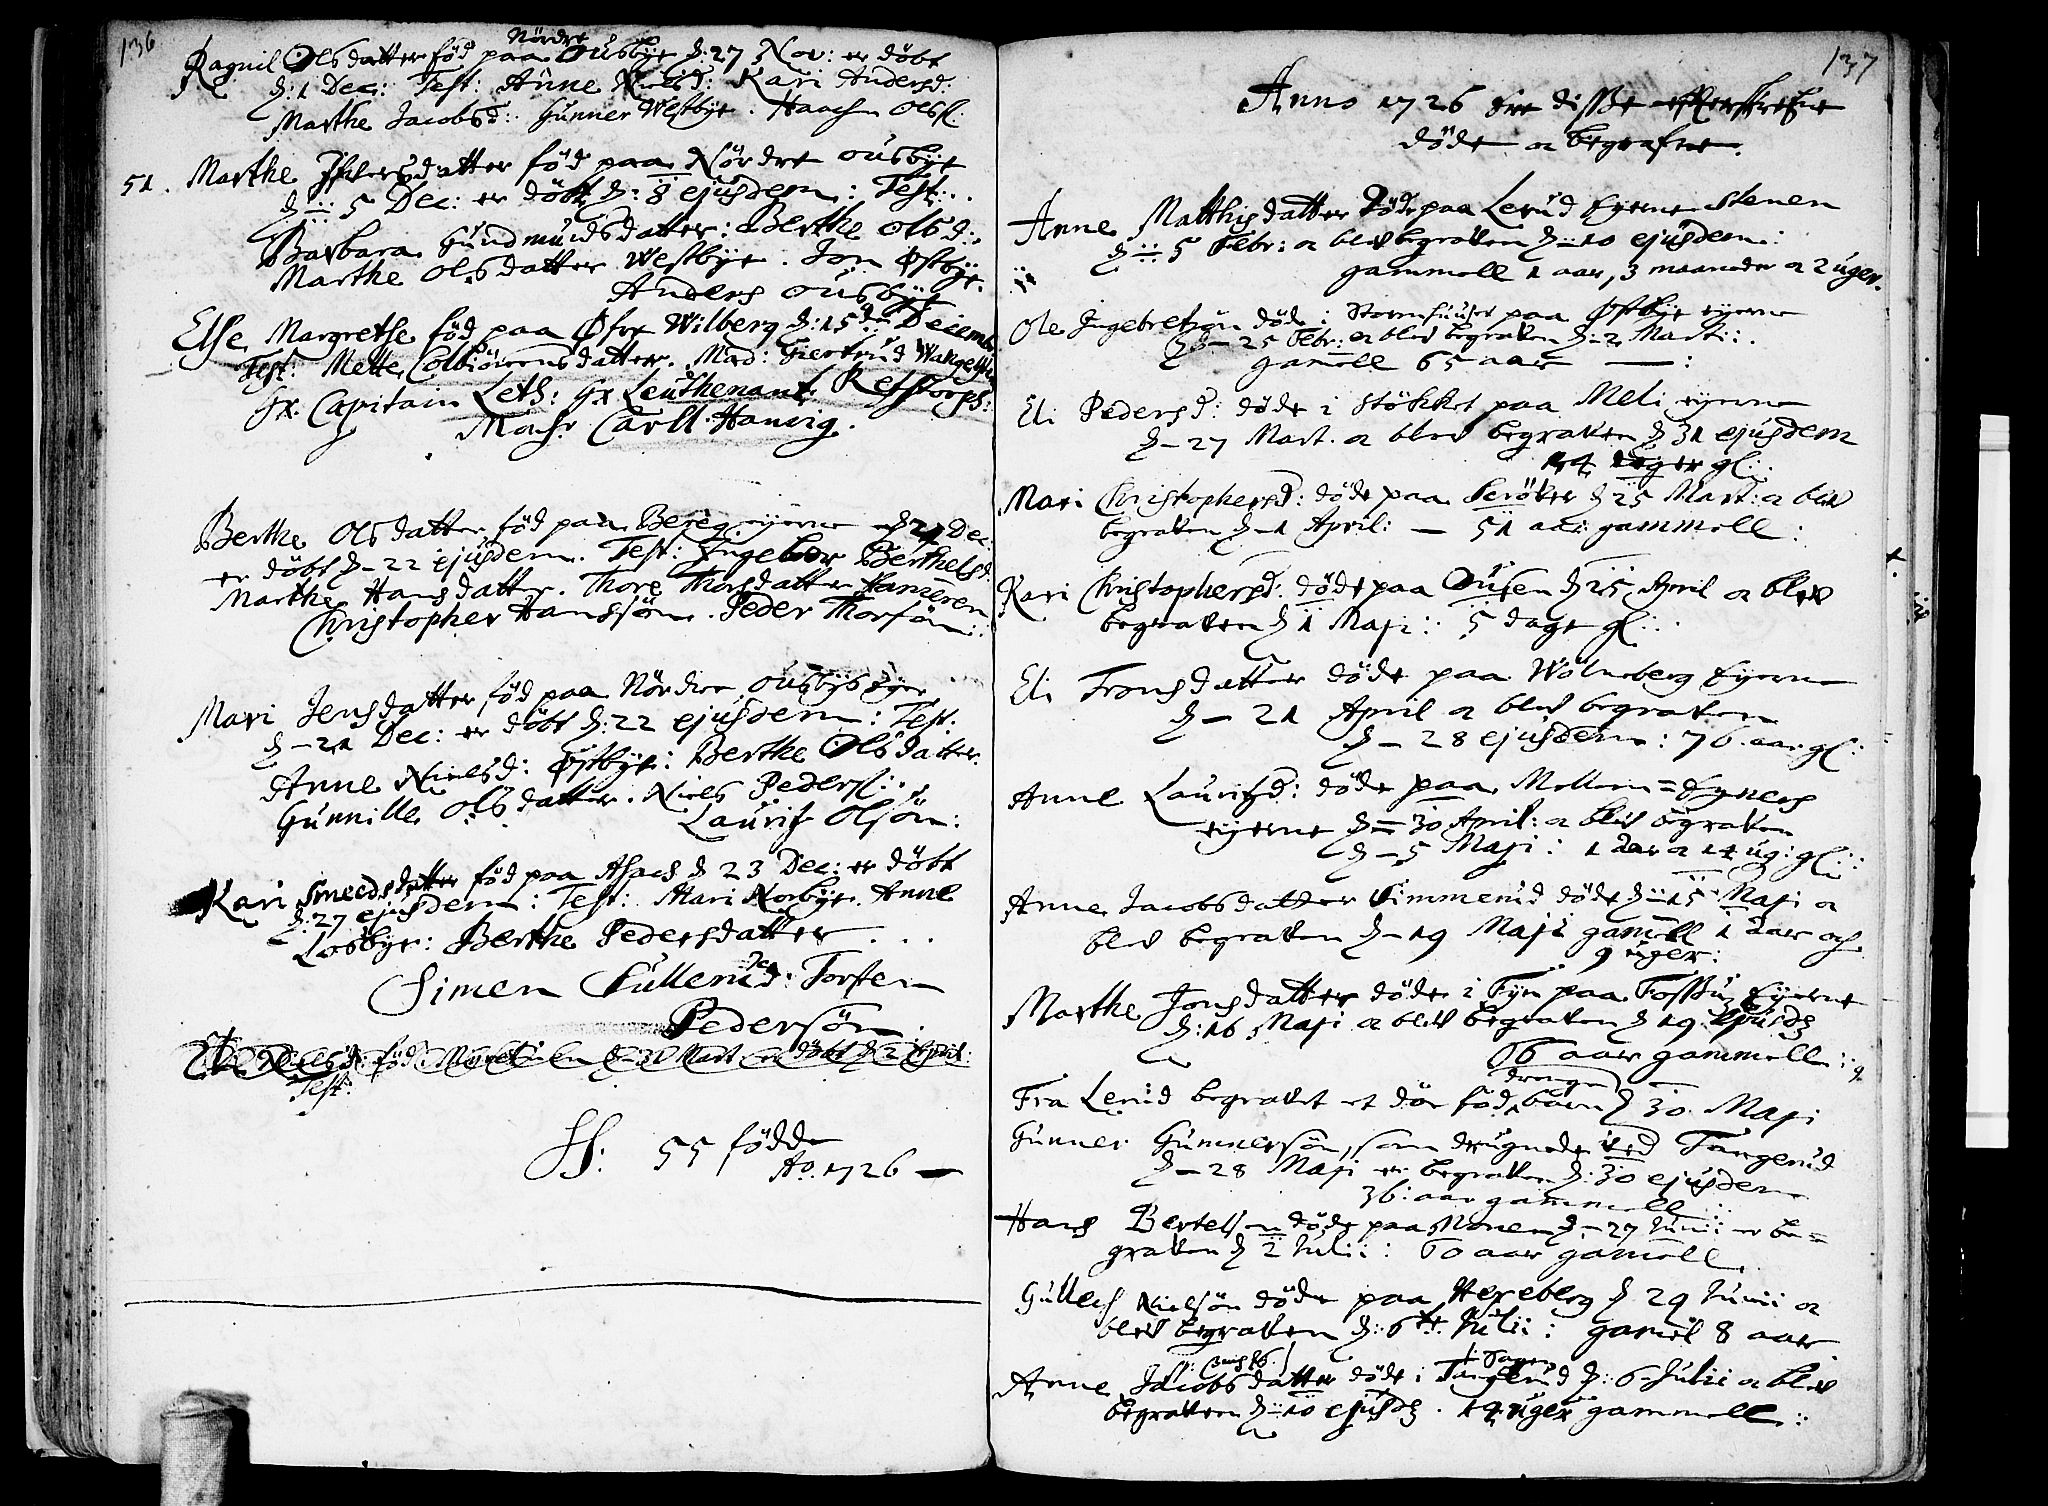 136
Ragnil Olsdatter fød paa Nördre Ousbÿe d: 27 Nov: er döbt
d: 1 Dec: Test: Anne Nielsd: Kari Andersd:
Marthe Jacobsd: Gunner Westbye. Haachen Olss:
51. Marthe Ifversdatter född paa Nördre ousbÿe
d: 5 Dec: er döbt d: 8 ejusdem: Test:
Barbara Gundmundsdatter: Berthe Olsd:
Marthe Olsdatter Westbÿe. Jon Østbÿe.
Anders Ousbÿe
Else Margrethe född paa Øfre Wilberg d: 15de Decemb
Test: Mette Colbiörensdatter. Mad: Giertrud
Hr. Capitain Leth: Hr Leuthenant Restorph:
Monsr Carll Hanvig.
Berthe Olsdatter född paa Bereg eyerne d 21 Dec:
er döbt d- 22 ejusdem. Test: Ingebor Berthelsd:
Marthe Hansdatter. Thore Thorsdatter Hameren
Christopher Hanssön. Peder Thorsön:
Mari Jensdatter född paa Nördre Ousbÿs Eyer
d- 21 Dec: er döbt d: 22 ejusdem: Test:
Anne Nielsd: Østbÿe: Berthe Olsdatter.
Gunnille Olsdatter. Niels Peders:
Laurits Olsön:
Kari Smedsdatter född paa Asach d 23 Dec: er döbt
d: 27 ejusdem: Test: Mari Norbÿe. Anne
Losbye: Berthe Pedersdatter
Simen Sullerud: Torsten
Pedersön.
född d 31 Mart er döbt d 2 April:
Test:
SS: 55 födde
Ao. 1726
137
Anno 1726 ere disse efterskrefne
döde oc begrafne.
Anne Matthisdatter döde paa Lerud Eyerne Stenen
d: 5 Febr: oc blef begraven d: 10 ejusdem:
gammell 1 aar, 3 maaneder oc 2 uger.
Ole Ingebretsön döde i Stormhuuset paa Østbÿe eyerne
d- 25 Febr: oc blef begraven d- 2 Martii:
gamell 65 aar
Eli Pedersd: döde i Stöket paa Meli eyerne
d- 27 Mart. oc blef begraven d 31 ejusdem
14 uger gl:
Mari Christophersd: döde paa d 25 Mart: oc blef
begraven d- 1 April: - 51 aar gammell:
Kari Christophersd: döde paa Ousen d 25 April oc blef
begraven d 1 Maji: 5 dage gl:
Eli Tronsdatter döde paa Wolneberg Eyerne
d- 21 April oc blef begraven
d- 28 ejusdem: 76 aar gl:
Anne Lauritzd: döde paa Mellem=Egners
eyerne d= 30 April: oc blef begraven
d- 5 Maji: 1 aar oc 14 ug: gl:
Anne Jacobsdatter Simmerud döde d 15 Maji oc
blef begraven d- 19 Maji gamell 1 aar och
9 uger:
Marthe Jonsdatter döde i Fÿn paa Fossum Eyerne
d: 16 Maji oc blef begraven d 19 ejusd
66 aar gammell:
Fra Lerud begravet et döe föd drenge barn d 30 Maji
Gunner Gunnersön, som drugnede ved Tangerud
d- 28 Maji er begraven d: 30 ejusdem
36: aar gammell
Hans Bertelsen döde paa Monen d- 27 Junii er be=
graven d 2 Julii: 60 aar gamell
Gullech Nielsön döde paa Hereberg d 29 Junii oc
blef begraven d: 6te Julii: gamel 8 aar
Anne Jacobsdatter döde i Tangerud d: 6 Julii oc blef
begraven d: 10 ejusd. 14 uger gammell: